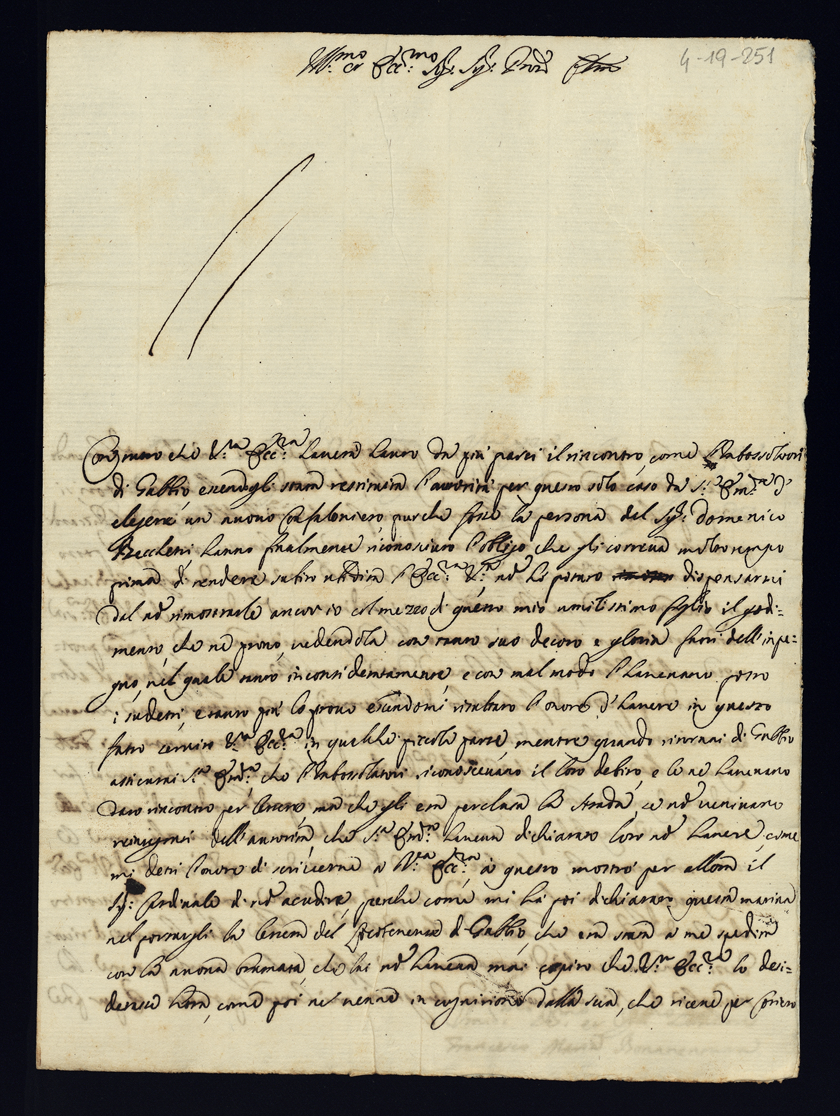 Ill.mo et Ecc.mo Sig.r Sig.r Pron
4-19-251
che V.ra Ecc.za haverà havuto da più parti il rincontro come l'Imbossolatori
di Gubbio, essendogli stata restituita l'autorità per questo solo caso da S. Em.za d'
elegere un nuovo Confaloniero purche fosse la persona del Sig.r Domenico
Beccheti hanno finalmente riconosciuto l'obligo che gli correva molto tempo
prima di rendere ubidita l'Ecc.za V.ra nè hò potuto dispensarmi
dal nõ rimostrarle ancor io col mezzo di questo mio umilissimo foglio il godi=
mento, che ne provo, vedendola con tanto suo decoro e gloria fuori dell'inpe=
gno, nel quale tanto inconsideratamente, e con mal modo l'havevano posto
i sudetti, e tanto più lo provo essendomi l'onore d'havere in questo
fatto servito V.ra Ecc.za in qualche piccola parte, mentre quando ritornai di Gubbio
assicurai S.a Em.za che l'Imbossolatori riconoscevano il loro debito, e le ne havevano
dato rincontro per lettere, ma che gli era perclusa la strada, se nõ venivano
reintegrati dell'autorità, che S.a Em.za haveva dichiarato loro nõ havere, come
mi detti l'onore di scriverna a V.ra Ecc.za, à questo mostrò per allora il
Sig.r Cardinale di nõ acudire, perche come mi hà poi dichiarato questa matina
nel portargli la lettera del Locotenente di Gubbio, che era stata a me spedita
con la nuova bramata, che lui nõ haveva mai capito che V.ra Ecc.za lo desi=
derasse hora, come poi ne venne in cognizione dalla sua, che riceve per corriero